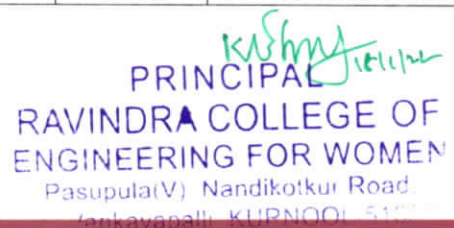 18/1/22
PRINCIPAL
RAVINDRA COLLEGE OF
ENGINEERING FOR WOMEN
Pasupula(V) Nandikotkur Road,
KURNOOL